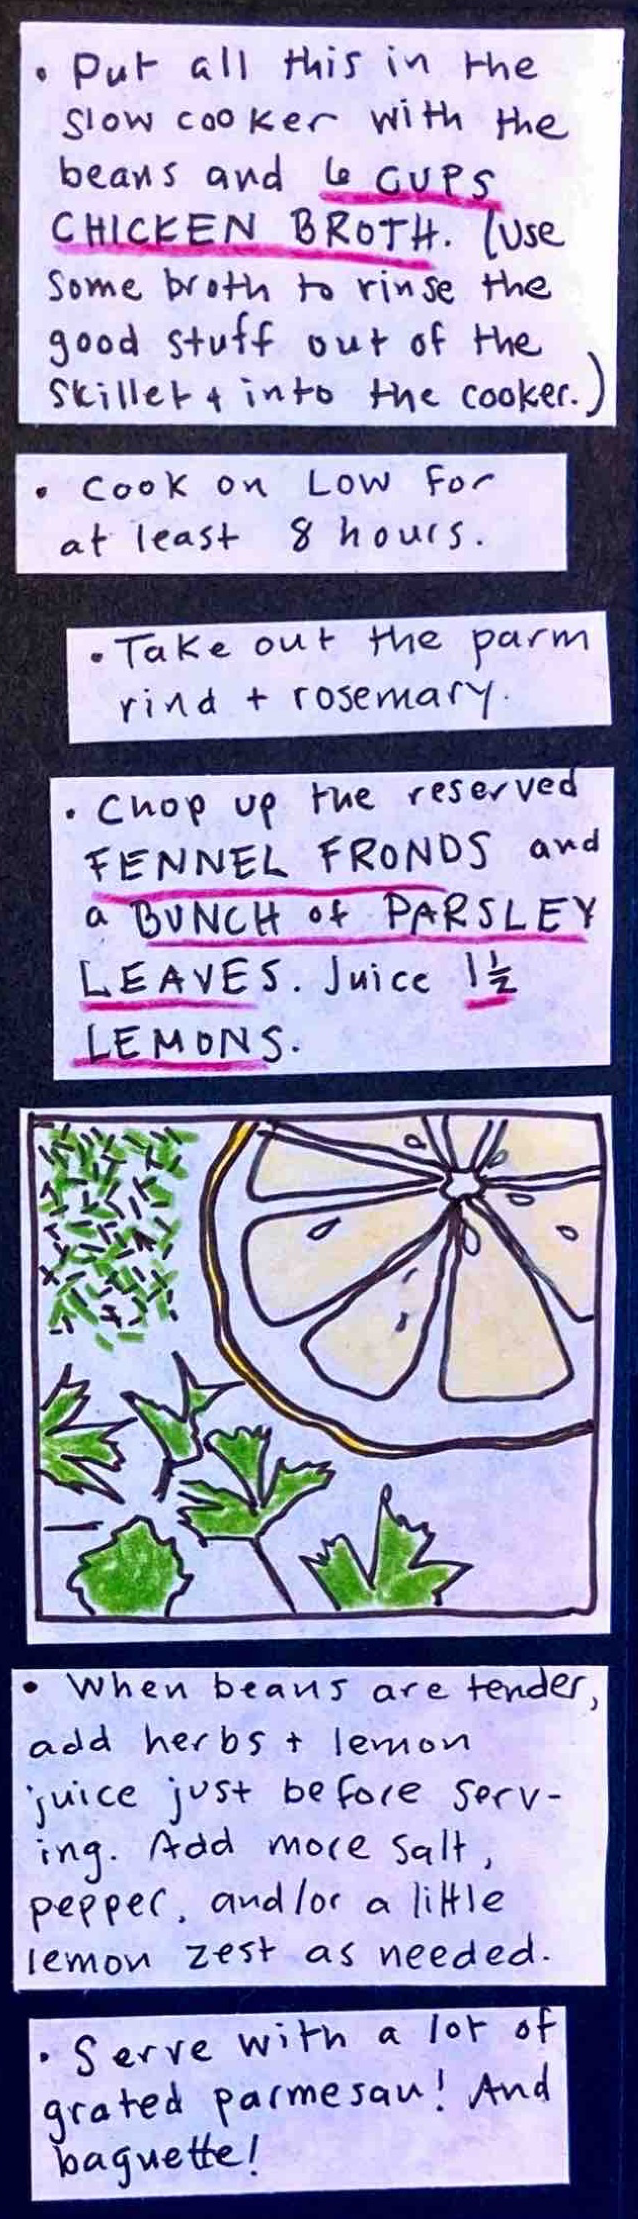 • Put all this in the
slow cooker with the
beans and 6 CUPS
CHICKEN BROTH. (Use
some broth to rinse the
good stuff out of the
skillet & into the cooker.)
• Cook on Low for
at least 8 hours.
• Take out the parm
rind + rosemary.
• Chop up the reserved
FENNEL FRONDS and
a BUNCH of PARSLEY
LEAVES. Juice 1½
LEMONS.
• When beans are tender,
add herbs + lemon
juice just before serv-
ing. Add more salt,
pepper, and/or a little
lemon zest as needed.
• Serve with a lot of
grated parmesan! And
baguette!